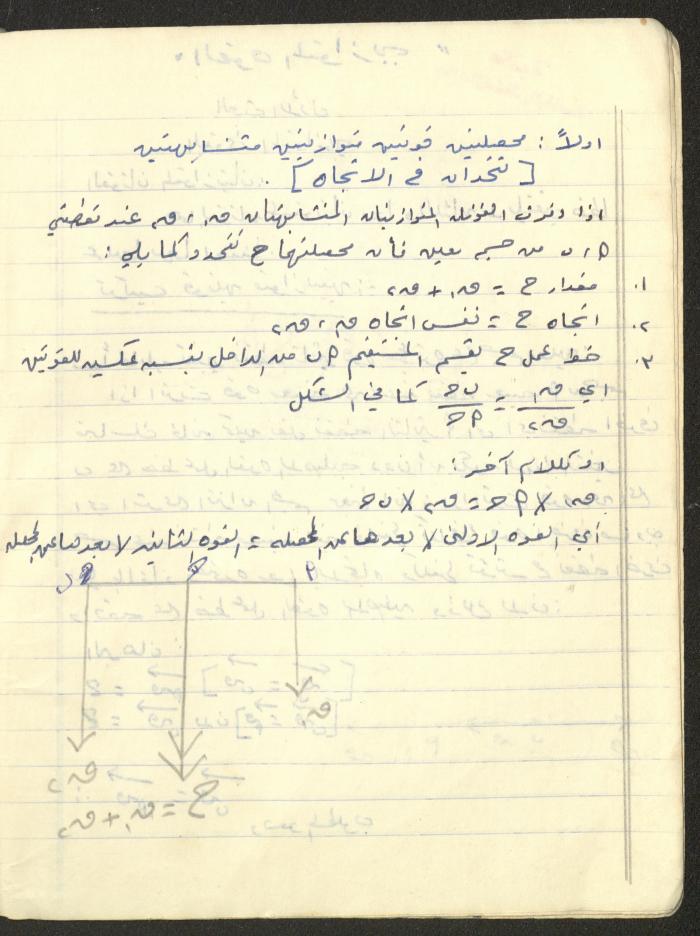 اولاً : محصلتين قوتين متوازيتين متشابهتين
[ تتحدان في الاتجاه ] .
اذا اثرت القوتان المتوازيتان المتشابهتان ق١ ، ق٢ عند نقطتي
P ، ن من جسم معين فأن محصلتهما ح تتحدد كما يلي :
١. مقدار ح = ق١ + ق٢
٢. اتجاه ح = نفس اتجاه ق١ ، ق٢
٣. خط عمل ح يقسم المستقيم P ن من الداخل بنسبه عكسيه للقوتين
اي ق١ / ق٢ = ن ح / P ح كما في الشكل
او بكلام آخر :
ق١ × P ح = ق٢ × ن ح
أي القوه الاولى × بعدها عن المحصله = القوه الثانيه × بعدها عن المحصله
P ن
ق١
ق٢
ح = ق١ + ق٢